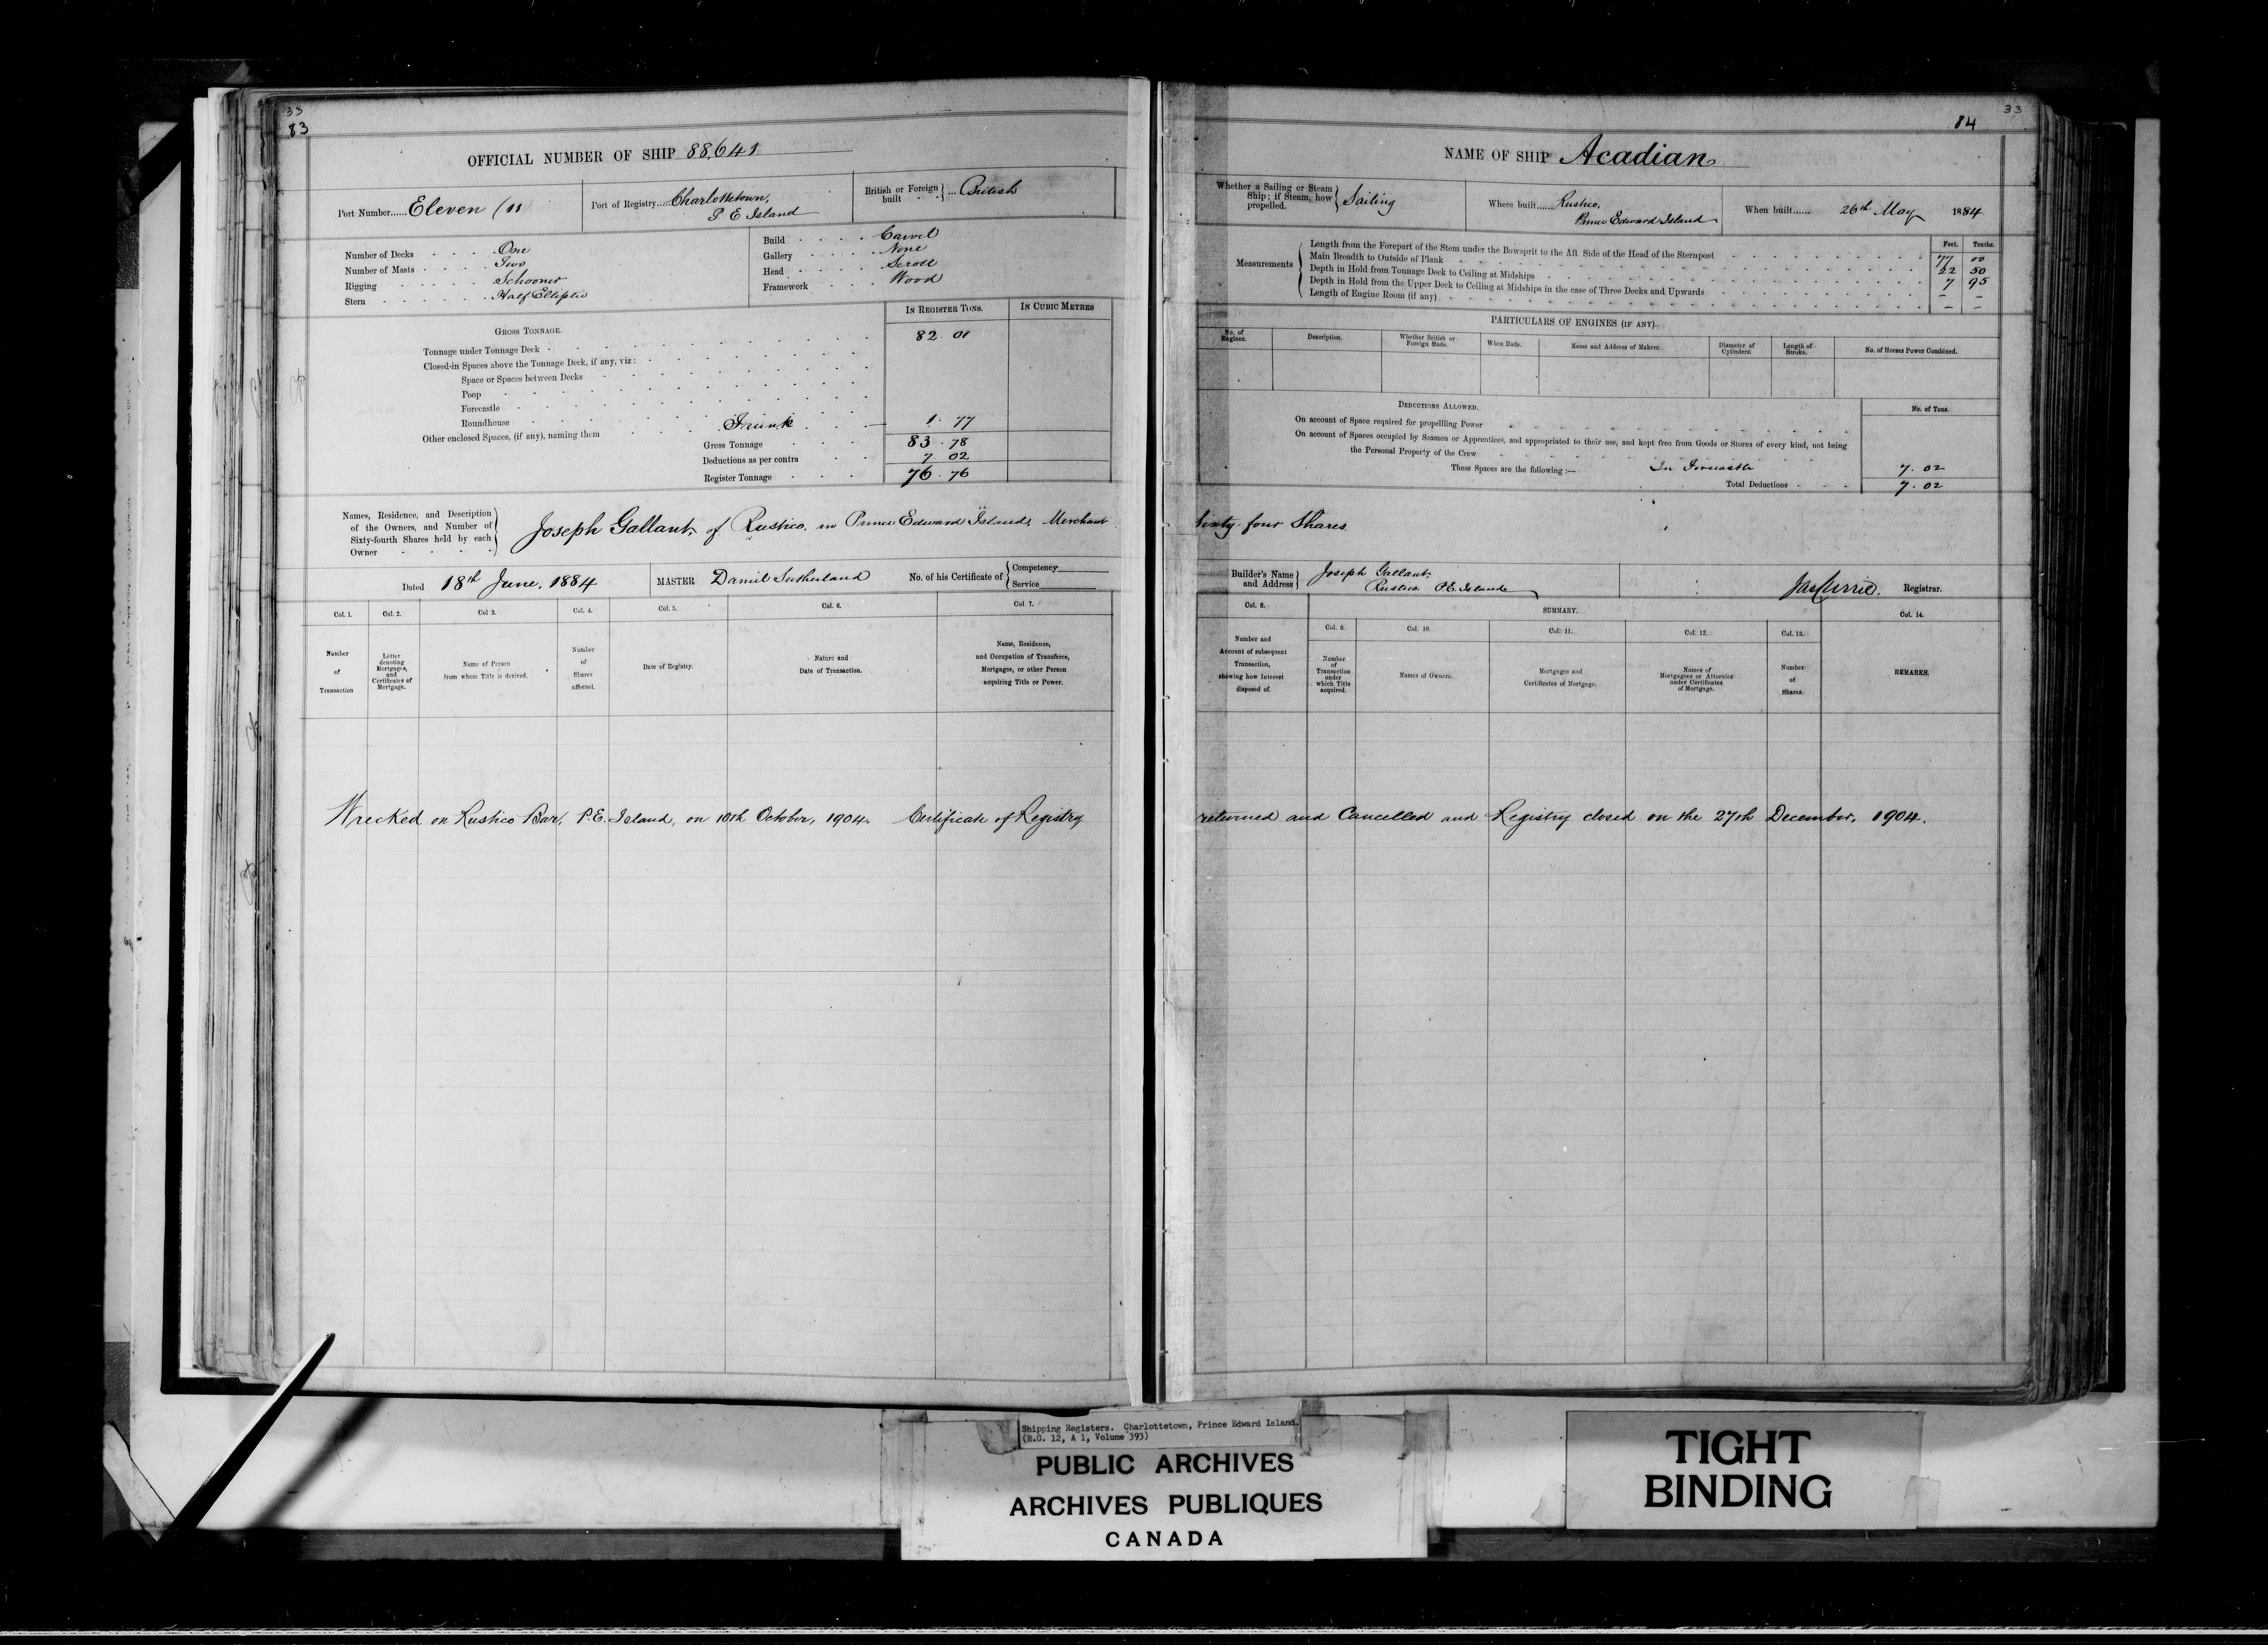 33
83
OFFICIAL NUMBER OF SHIP 88,641
Port Number......Eleven (11
Port of Registry.....Charlottetown,
P E Island
British or Foreign built } ... British
Number of Decks One
Number of Masts Two
Rigging Schooner
Stern Half Elliptic
Build Carvel
Gallery None
Head Scroll
Framework Wood
IN REGISTER TONS. IN CUBIC METRES
GROSS TONNAGE.
Tonnage under Tonnage Deck 82. 01
Closed-in Spaces above the Tonnage Deck, if any, viz:
Space or Spaces between Decks
Poop
Forecastle
Roundhouse
Other enclosed Spaces, (if any), naming them Trunk 1. 77
Gross Tonnage 83. 78
Deductions as per contra 7 02
Register Tonnage 76. 76
Names, Residence, and Description of the Owners, and Number of Sixty-fourth Shares held by each Owner
Joseph Gallant, of Rustico, in Prince Edward Island, Merchant
Dated 18th June, 1884
MASTER Daniel Sutherland
No. of his Certificate of { Competency
Service
Col. 1. Col. 2. Col 3. Col. 4. Col. 5. Col. 6. Col. 7.
Number of Transaction
Letter denoting Mortgages, and Certificates of Mortgage.
Name of Person from whom Title is derived.
Number of Shares affected.
Date of Registry.
Nature and Date of Transaction.
Name, Residence, and Occupation of Transferee, Mortgagee, or other Person acquiring Title or Power.
Wrecked on Rustico Bar, P.E. Island, on 10th October, 1904. Certificate of Registry
33
84
NAME OF SHIP Acadian
Whether a Sailing or Steam Ship; if Steam, how propelled. } Sailing
Where built......Rustico,
Prince Edward Island
When built...... 26th May 1884
Measurements
Feet. Tenths.
Length from the Forepart of the Stem under the Bowsprit to the Aft Side of the Head of the Sternpost 77 00
Main Breadth to Outside of Plank 22 50
Depth in Hold from Tonnage Deck to Ceiling at Midships 7 95
Depth in Hold from the Upper Deck to Ceiling at Midships in the case of Three Decks and Upwards - -
Length of Engine Room (if any) - -
PARTICULARS OF ENGINES (IF ANY).
No. of Engines. Description. Whether British or Foreign Made. When Made. Name and Address of Makers. Diameter of Cylinders. Length of Stroke. No. of Horses Power Combined.
DEDUCTIONS ALLOWED. No. of Tons.
On account of Space required for propelling Power
On account of Spaces occupied by Seamen or Apprentices, and appropriated to their use, and kept free from Goods or Stores of every kind, not being
the Personal Property of the Crew
These Spaces are the following :— In Forecastle 7. 02
Total Deductions 7. 02
Sixty four Shares
Builder's Name and Address } Joseph Gallant,
Rustico P.E. Island
Jas Currie. Registrar.
Col. 8. SUMMARY. Col. 14.
Col. 9. Col. 10. Col. 11. Col. 12. Col. 13.
Number and Account of subsequent Transaction, showing how Interest disposed of.
Number of Transaction under which Title acquired.
Names of Owners.
Mortgages and Certificates of Mortgage.
Names of Mortgagees or Attornies under Certificates of Mortgage.
Number of Shares.
REMARKS.
returned and Cancelled and Registry closed on the 27th December, 1904.
Shipping Registers. Charlottetown, Prince Edward Island.
(R.G. 12, A 1, Volume 393)
PUBLIC ARCHIVES
ARCHIVES PUBLIQUES
CANADA
TIGHT
BINDING